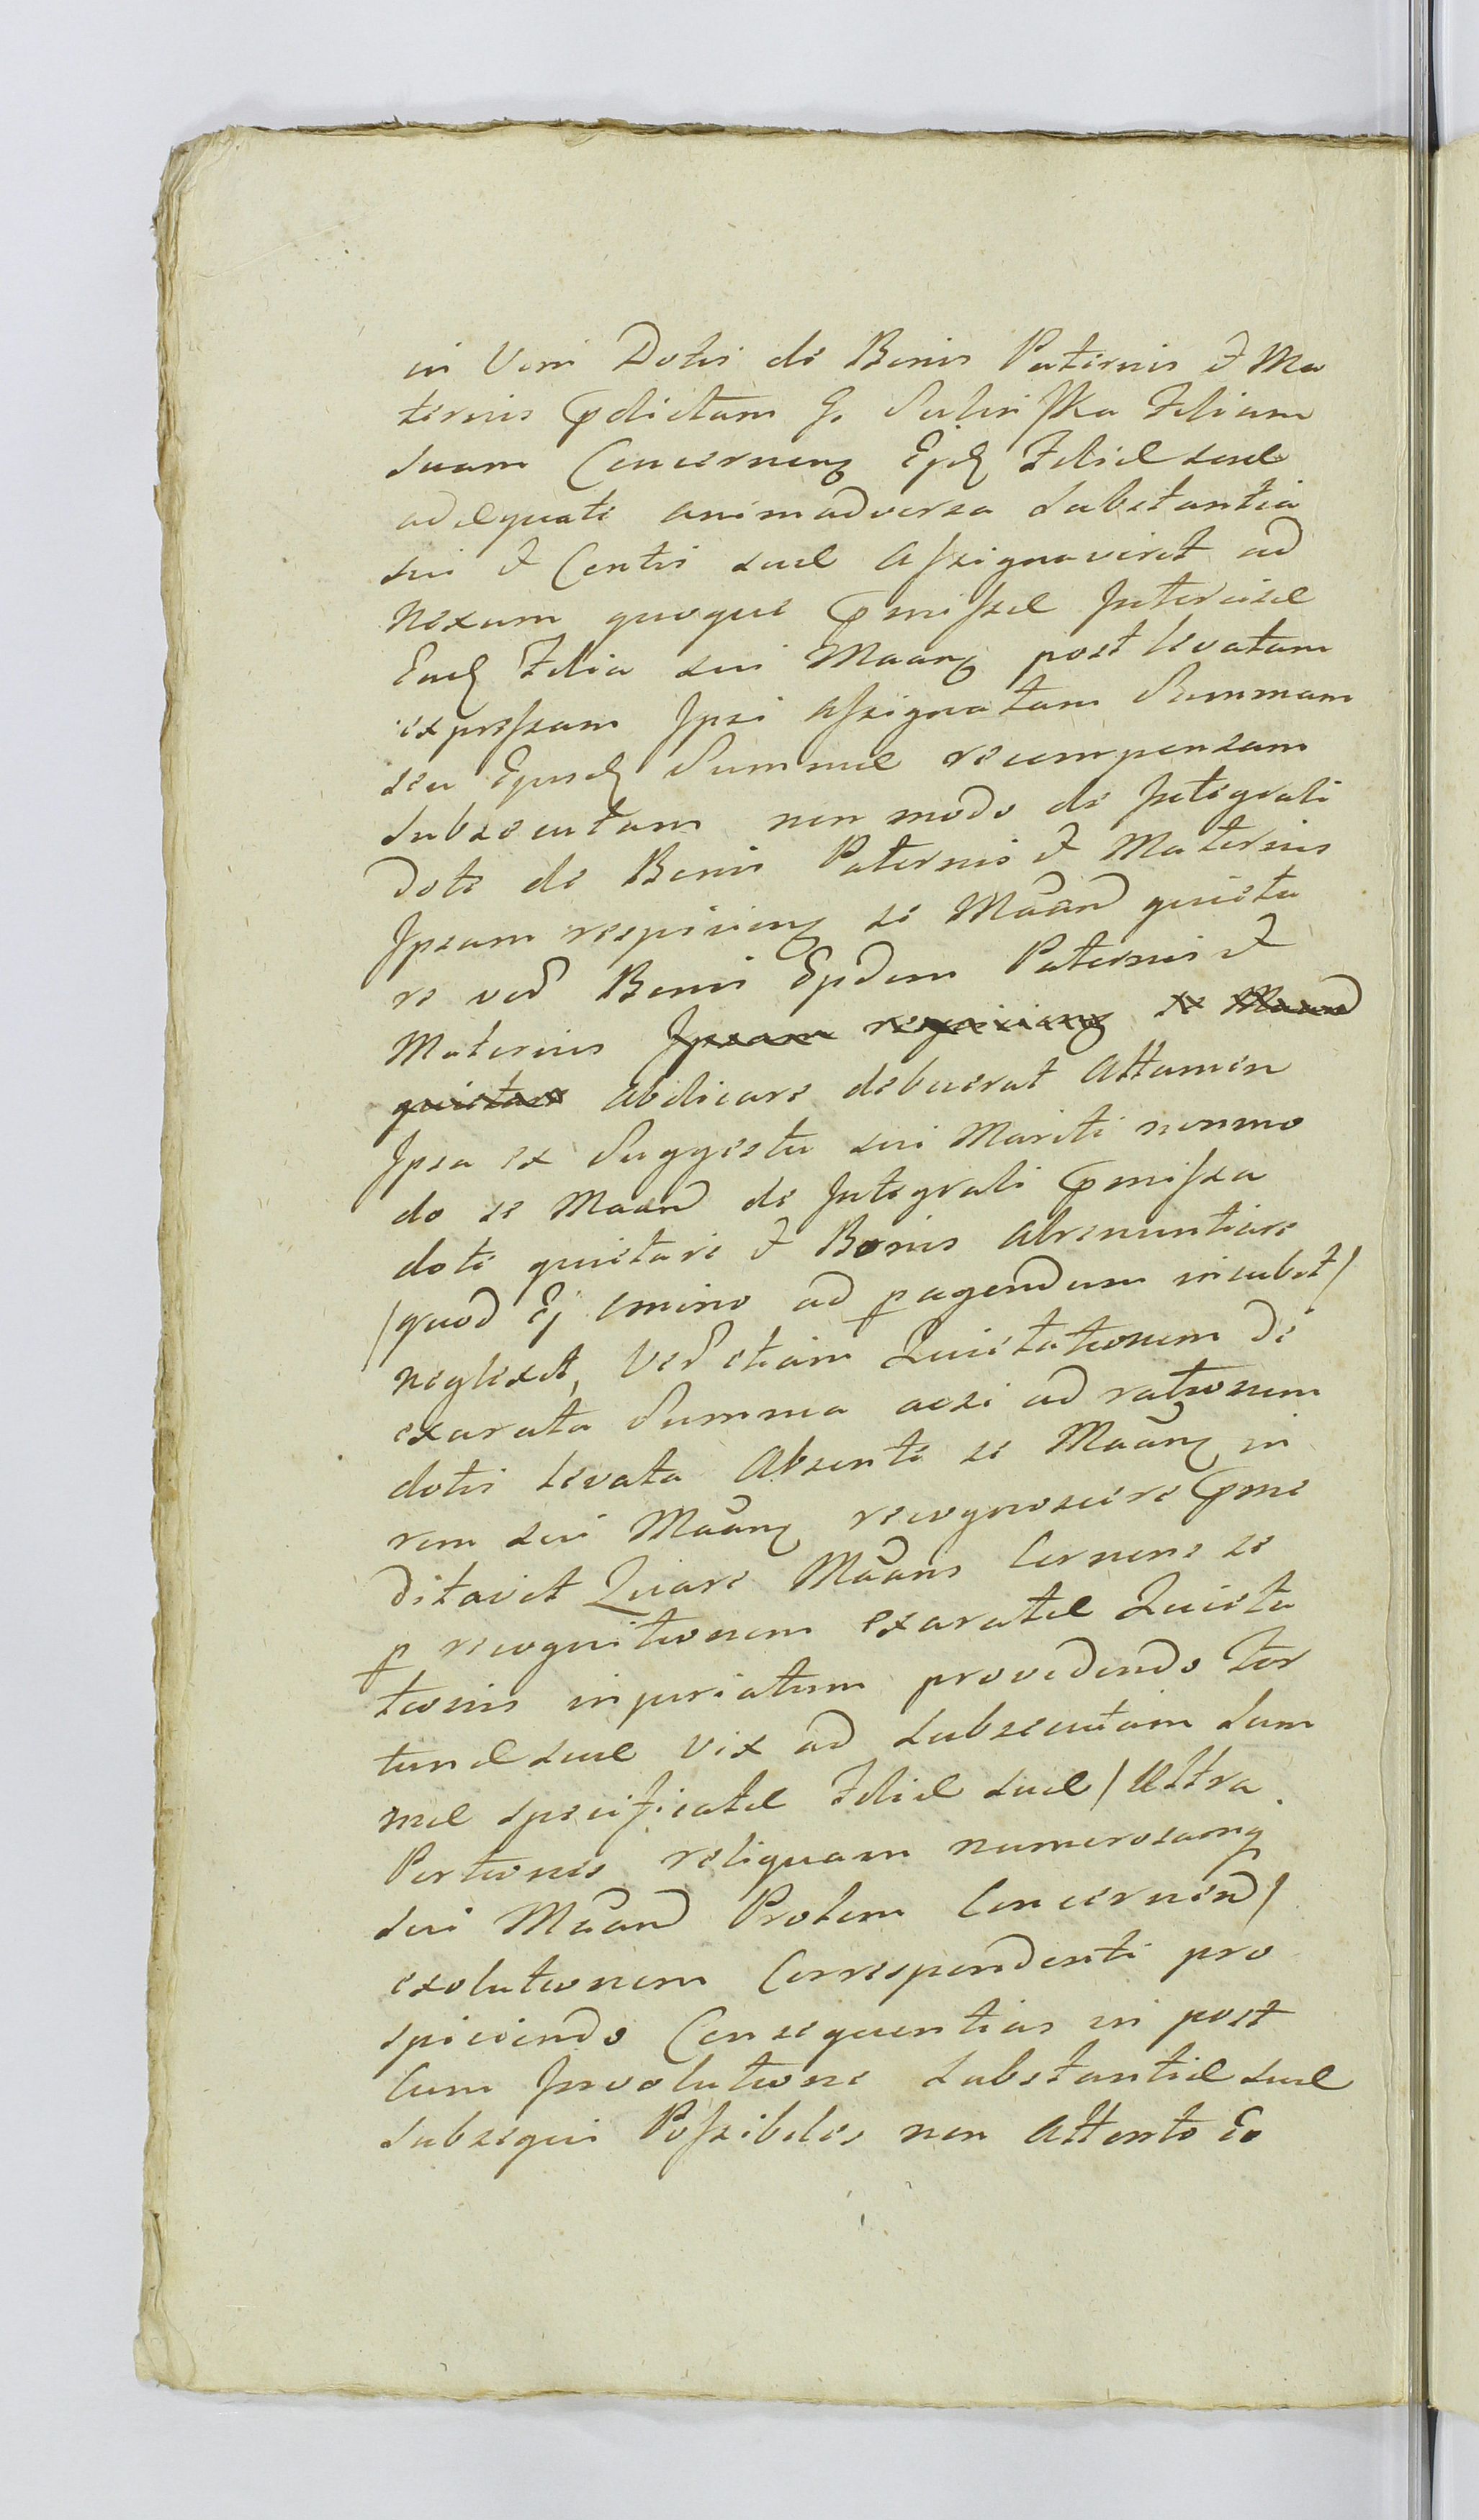 in Vim Dotis de Bonis Paternis & Ma
ternis Pdictam G. Sulinska Filiam
Suam Concernen Ejd Filiæ suæ
adæquate animadversa Substantia
sui & Contis suæ Assignaverit ad
nexum quoque Pmissæ Intercisæ
Ead Filia sui Maans post levatam
expressam Ipsi assignatam Summam
seu Ejusd Summæ recompensam
Subsecutam non modo de Integrali
Dote de Bonis Paternis & Maternis
Ipsam respicien se Maand quieta
re ved Bonis Ejsdem Paternis &
Maternis Ipsam respicien se Maand
quietare abdicare debuerat Attamen
Ipsa ex Suggestu sui Mariti nonmo
do se Maand de Integrali Pmissa
dote quietare & Bonis Abrenuntiare
/quod Ej omino ad pagendum incubit/
neglexit, Ved etiam Quietationem de
exarata Summa acsi ad rationem
dotis levata Absente se Maan in
rem sui Maan recognoscere Pme
ditavit Quare Maans Cernens se
p recognitionem exaratæ Quieta
tionis injuriatum providendo For
tunæ suæ vix ad Subsecutam Sum
mæ specificatæ Filiæ suæ /Ultra
Portionis reliquam numerosamq
sui Maand Prolem Concernend/
exolutionem Correspondenti pro
spiciendo Consequentias in post
cum Involutione Substantiæ suæ
Subsequi Possibiles non Attento Eo